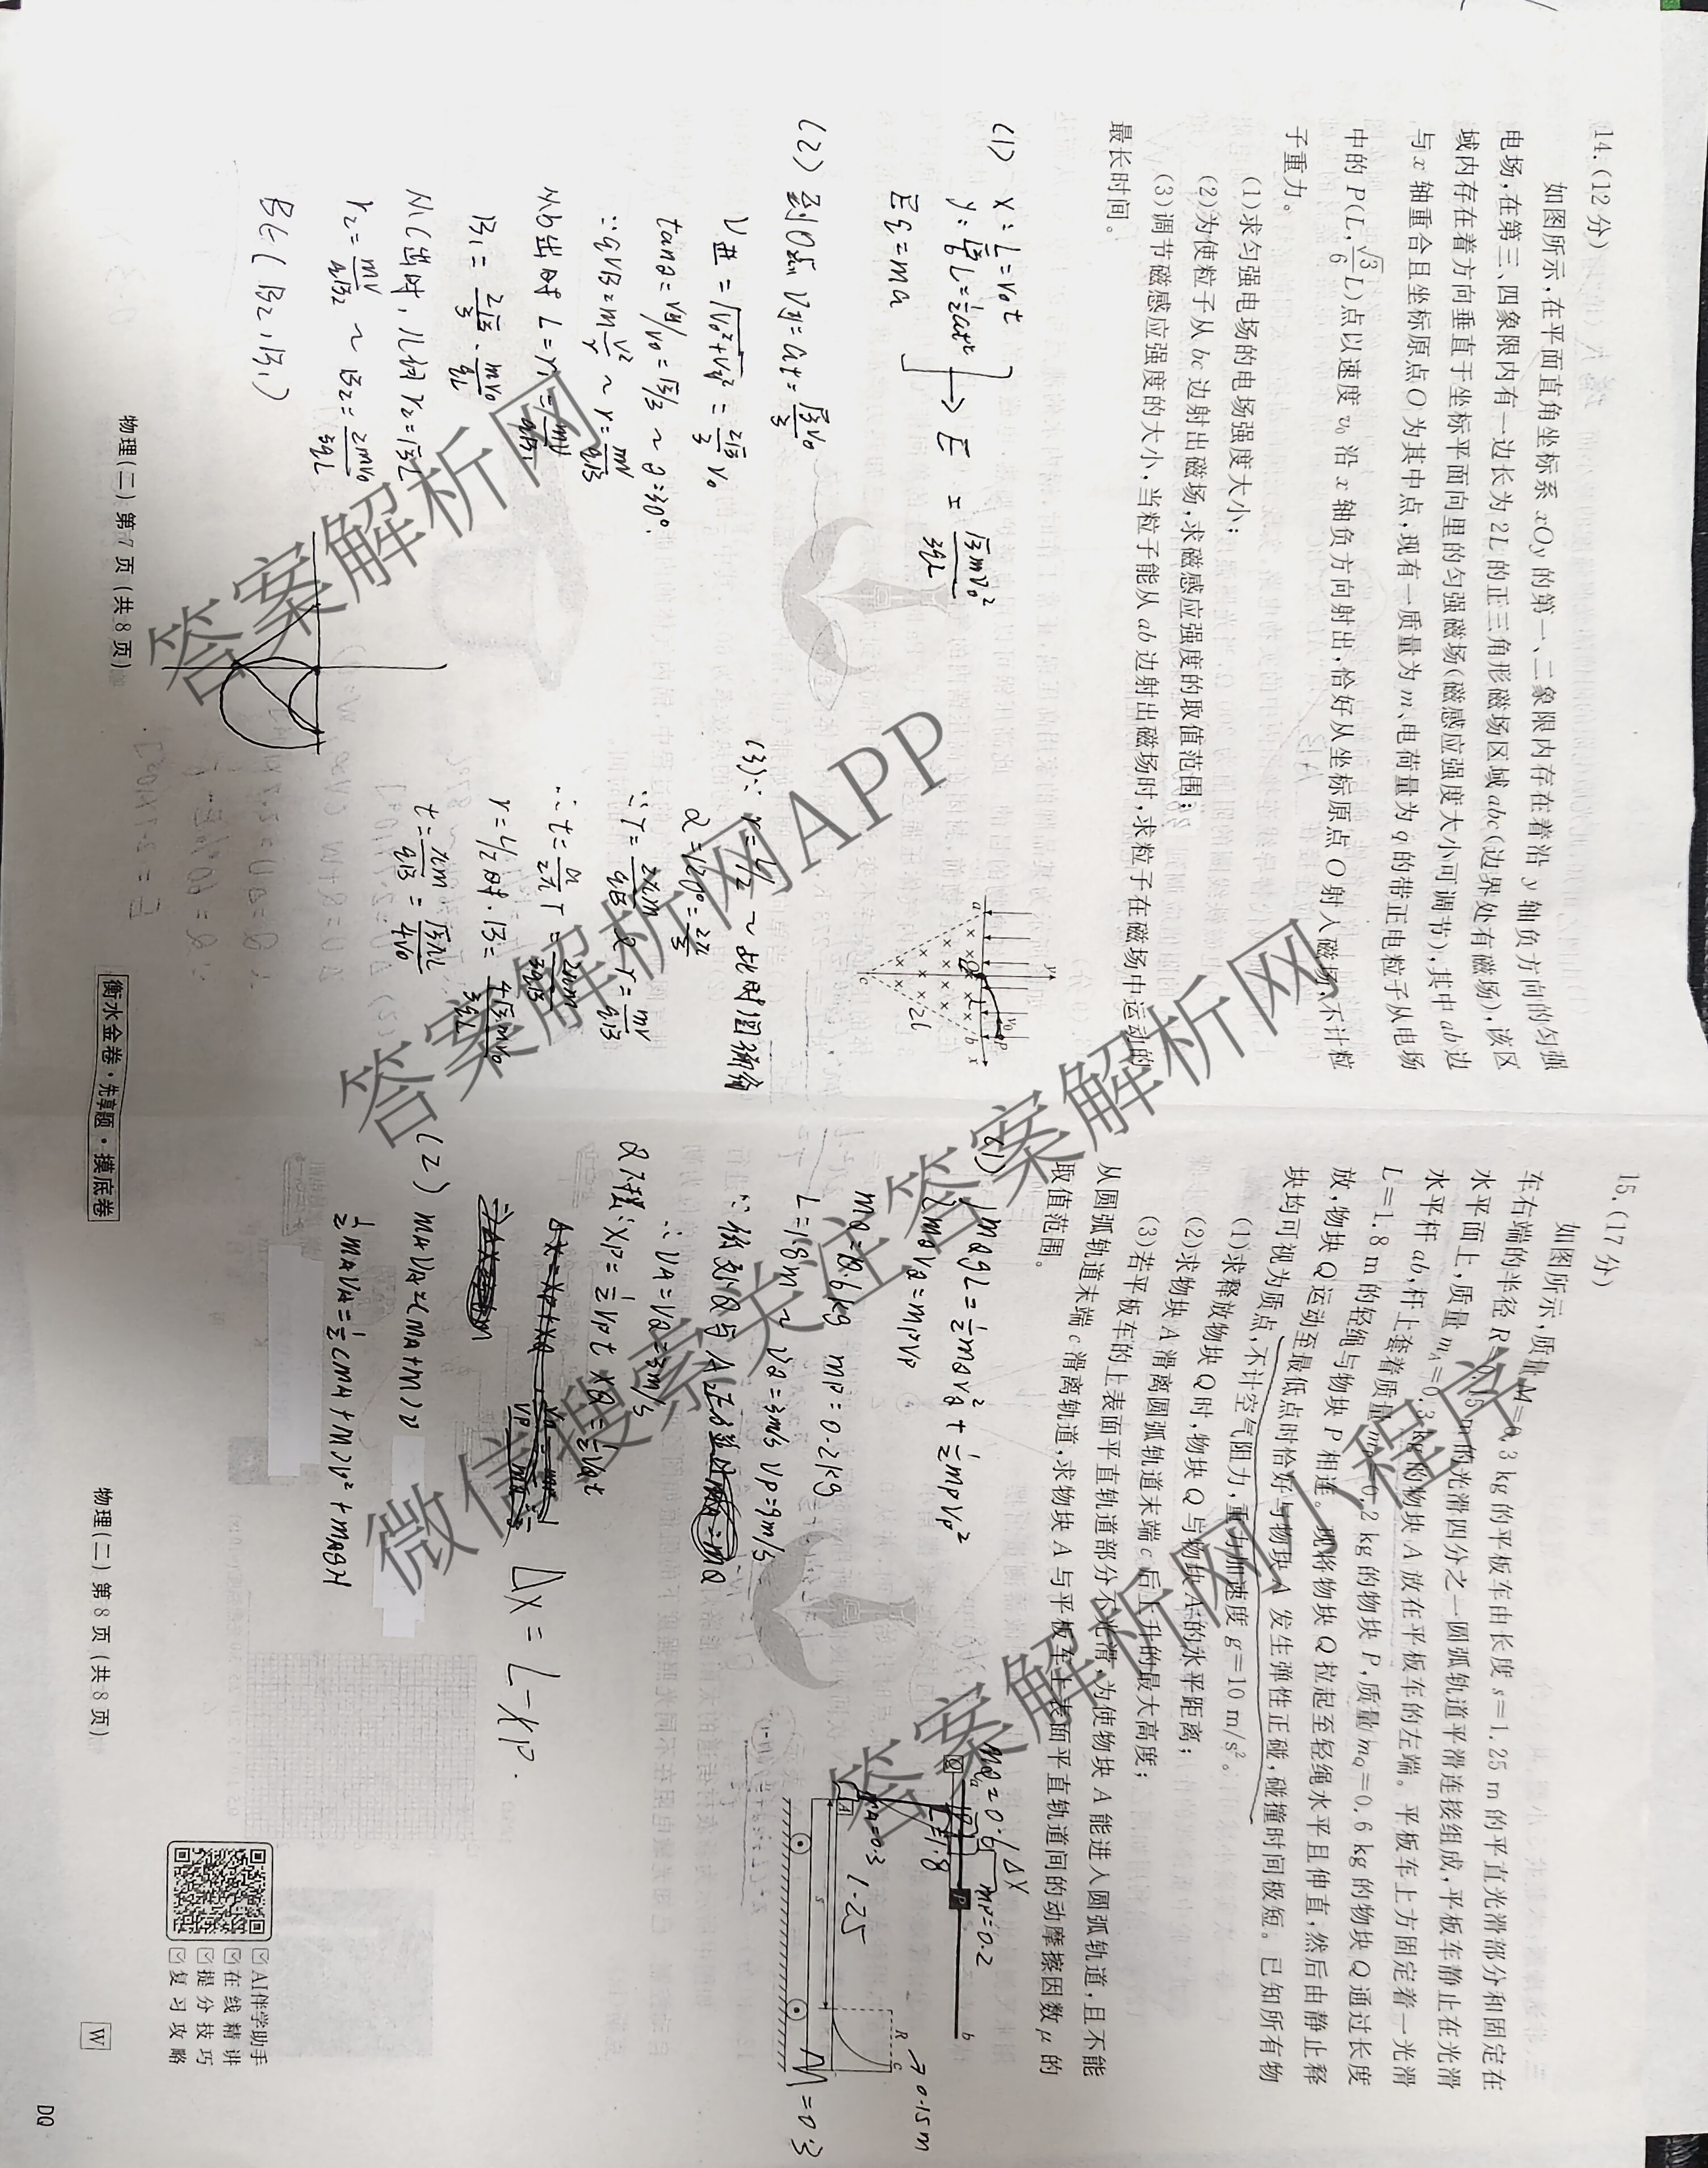 14.(12分)
如图所示,在平面直角坐标系xOy的第一、二象限内存在着沿y轴负方向的匀强
电场,在第三、四象限内有一边长为2L的正三角形磁场区域abc(边界处有磁场),该区
域内存在着方向垂直于坐标平面向里的匀强磁场(磁感应强度大小可调节),其中ab边
与x轴重合且坐标原点O为其中点,现有一质量为m、电荷量为q的带正电粒子从电场
中的P(L,√3/6 L)点以速度v₀沿x轴负方向射出,恰好从坐标原点O射入磁场,不计粒
子重力。
(1)求匀强电场的电场强度大小;
(2)为使粒子从bc边射出磁场,求磁感应强度的取值范围;
(3)调节磁感应强度的大小,当粒子能从ab边射出磁场时,求粒子在磁场中运动的
最长时间。
(1) x: L=v₀t
y: √3/6 L=1/2at²
Eq=ma
→ E = √3mv₀²/3qL
(2) 到O点 Vy=at=√3/3 v₀
V进=√(v₀²+Vy²)=2√3/3 v₀
tanθ=Vy/v₀=√3/3 ~ θ=30°
∵qVB=m v²/r ~ r=mv/qB
从b出时 L=r₁=mv/qB₁
B₁=2√3/3·mv₀/qL
从c出时,几何 r₂=√3L
r₂=mv/qB₂ ~ B₂=2mv₀/3qL
B∈(B₂,B₁)
(3)∵ r=L/2 ~ 此时圆弧
α=120°=2π/3
∵T=2πm/qB r=mv/qB
∴t=α/2π T=2πm/3qB
r=L/2时,B=4√3mv₀/3qL
y
v₀
P
a
O
L
b
x
c
2L
物理(二) 第7页(共8页)
衡水金卷·先享题·摸底卷
15.(17分)
如图所示,质量M=0.3 kg的平板车由长度s=1.25 m的平直光滑部分和固定在
车右端的半径R=0.15 m的光滑四分之一圆弧轨道平滑连接组成,平板车静止在光滑
水平面上,质量mA=0.3 kg的物块A放在平板车的左端。平板车上方固定着一光滑
水平杆ab,杆上套着质量mP=0.2 kg的物块P,质量mQ=0.6 kg的物块Q通过长度
L=1.8 m的轻绳与物块P相连。现将物块Q拉起至轻绳水平且伸直,然后由静止释
放,物块Q运动至最低点时恰好与物块A发生弹性正碰,碰撞时间极短。已知所有物
块均可视为质点,不计空气阻力,重力加速度g=10 m/s²。
(1)求释放物块Q时,物块Q与物块A的水平距离;
(2)求物块A滑离圆弧轨道末端c后上升的最大高度;
(3)若平板车的上表面平直轨道部分不光滑,为使物块A能进入圆弧轨道,且不能
从圆弧轨道末端c滑离轨道,求物块A与平板车上表面平直轨道间的动摩擦因数μ的
取值范围。
(1) mQgL=1/2mQVQ²+1/2mPVP²
mQVQ=mPVP
mQ=0.6kg mP=0.2kg
L=1.8m ~ VQ=3m/s VP=9m/s
Q下摆:XP=1/2VPt XQ=1/2VQt
ΔX=L-XP.
(2) mAVA=(mA+M)V
1/2mAVA²=1/2(mA+M)V²+mAgH
mQ=0.6
ΔX
mP=0.2
Q
P
a
b
L=1.8
A
mA=0.3
1.25
s
R
c
→0.15m
M=0.3
物理(二) 第8页(共8页)
AI伴学助手
在线精讲
提分技巧
复习攻略
W
DQ
答案解析网
答案解析网APP
微信搜索关注答案解析网
答案解析网小程序